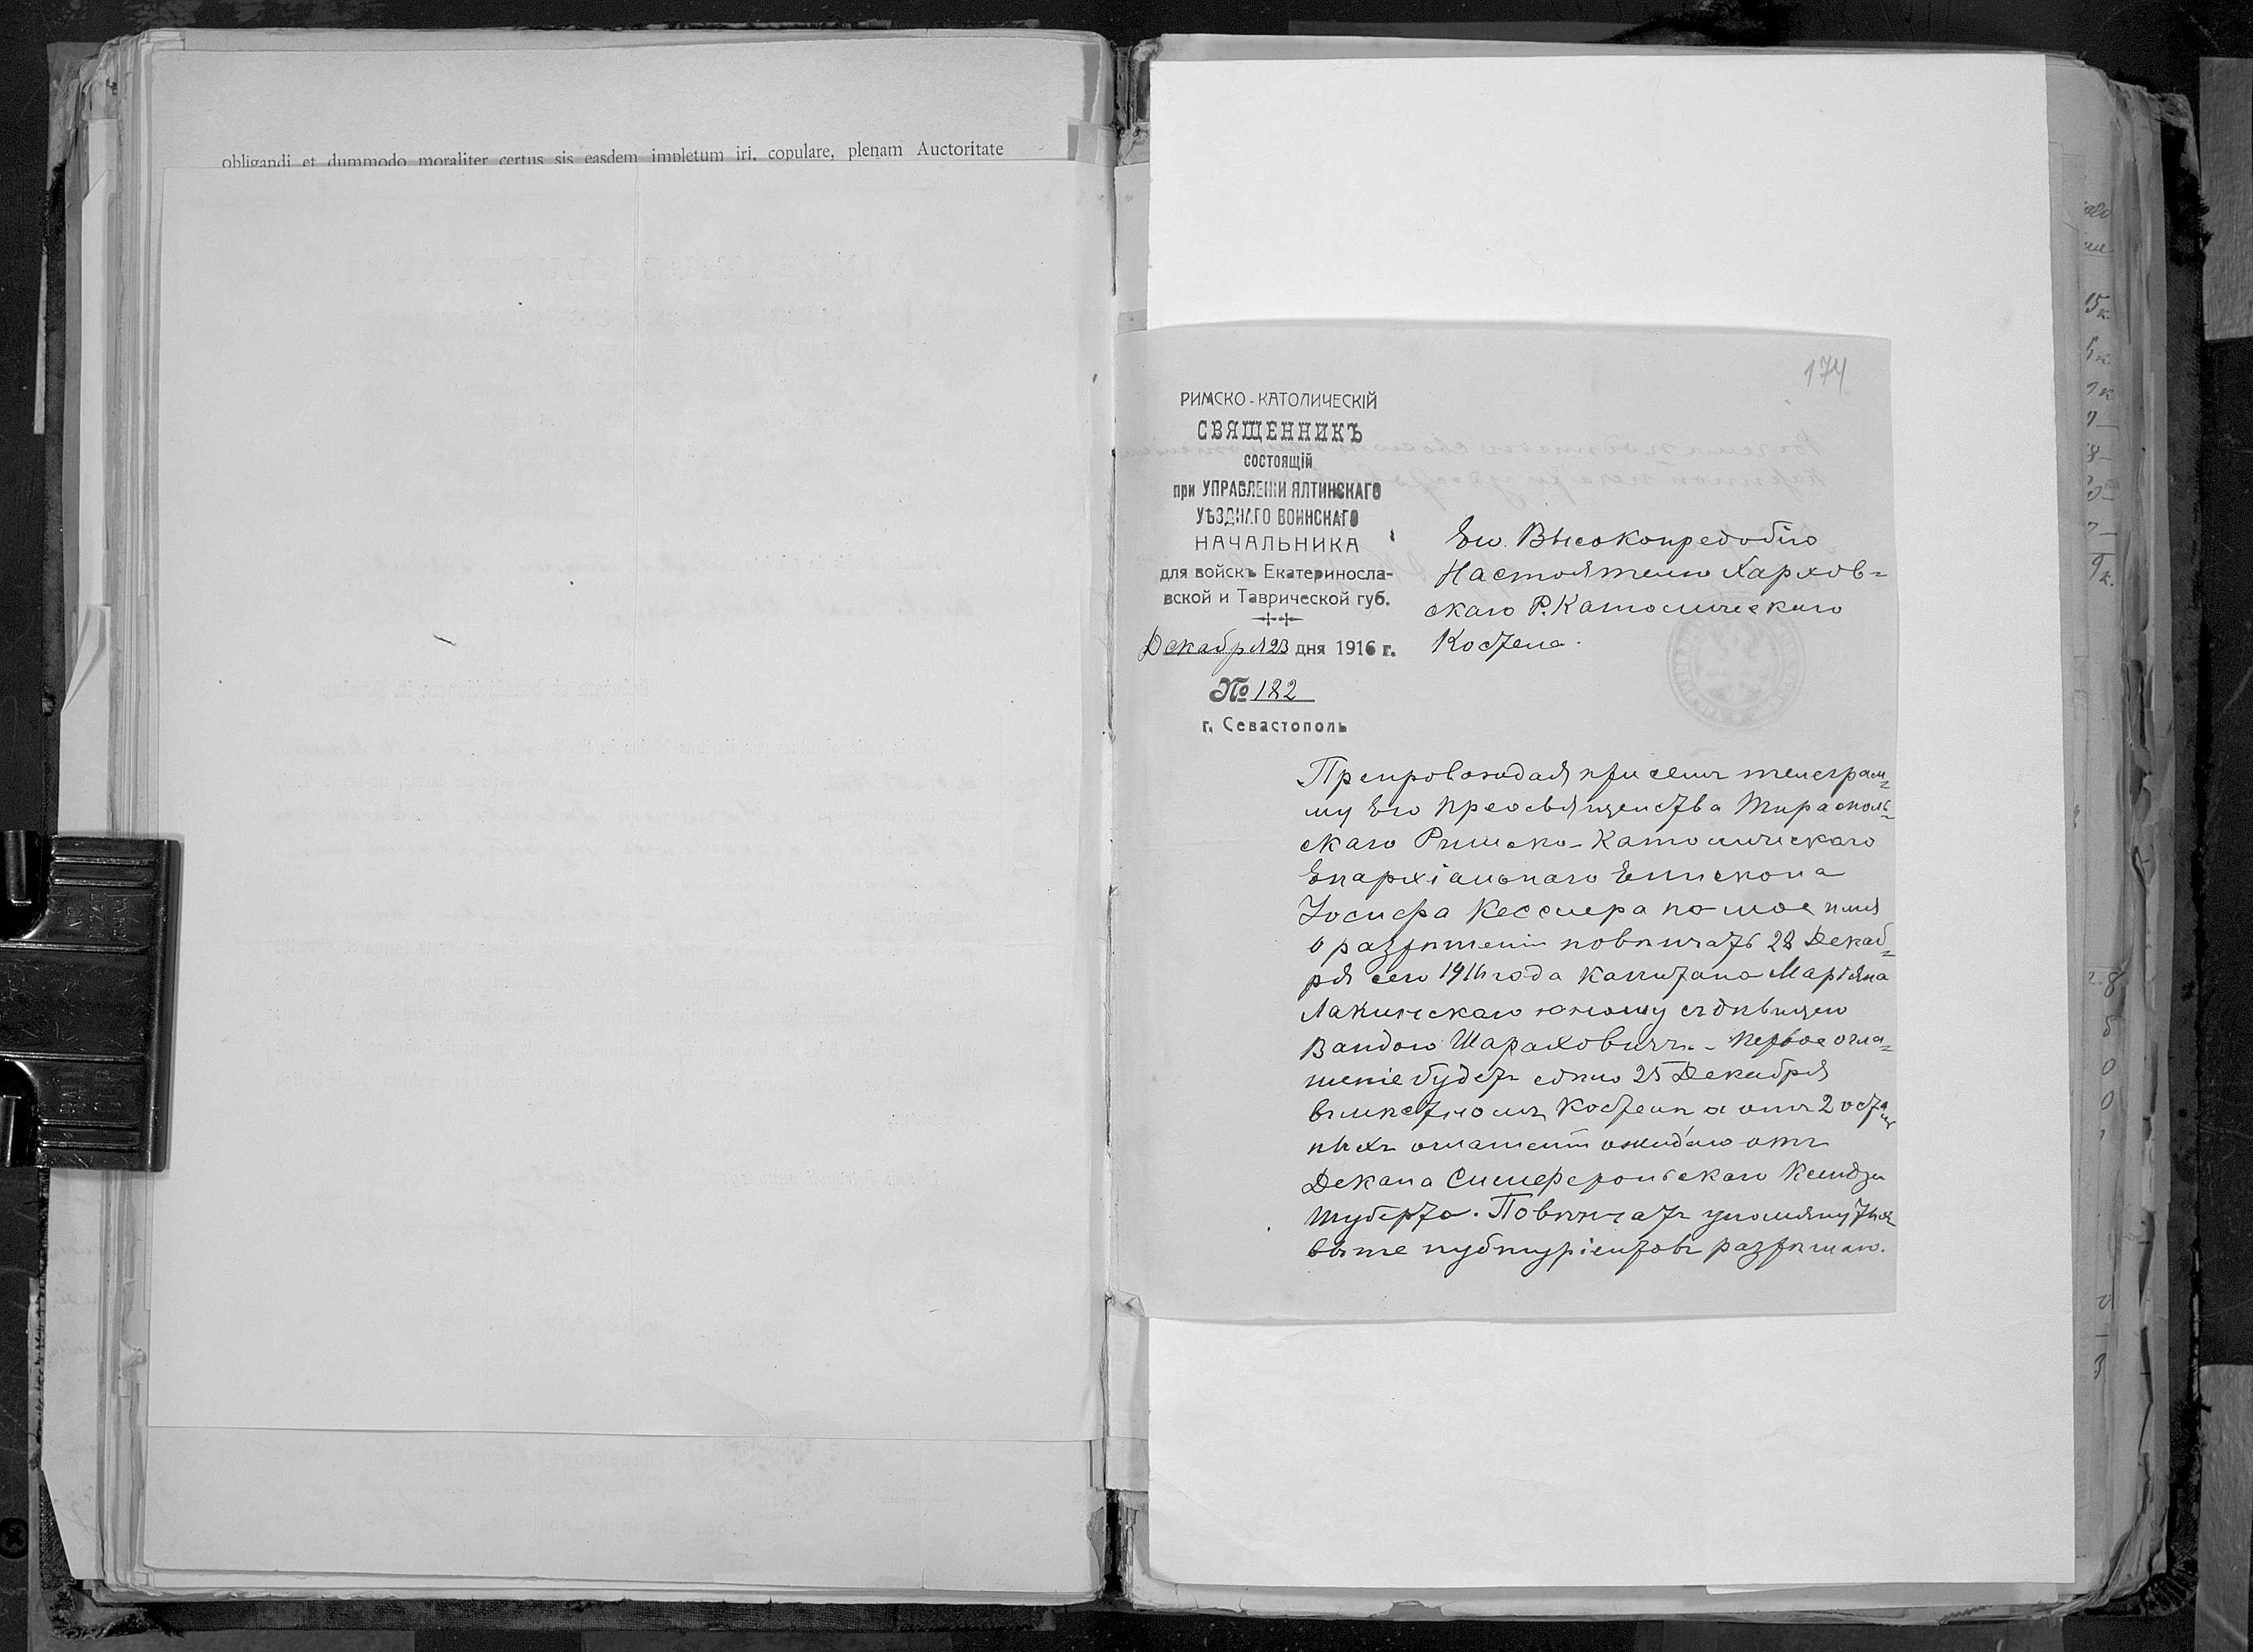 obligandi et dummodo moraliter certus sis easdem impletum iri, copulare, plenam Auctoritate
174
РИМСКО-КАТОЛИЧЕСКІЙ
СВЯЩЕННИКЪ
состоящій
при УПРАВЛЕНІИ ЯЛТИНСКАГО
УѢЗДНАГО ВОИНСКАГО
НАЧАЛЬНИКА
для войскъ Екатериносла-
вской и Таврической губ.
Декабря 23 дня 1916 г.
№ 182
г. Севастополь
Его Высокопредобію
Настоятелю Харков-
скаго Р. Католическаго
Костела.
Препровождая при семъ телеграм-
му Его Преосвященства Тирасполь-
скаго Римско-Католическаго
Епархіальнаго Епископа
Іосифа Кесслера на мое имя
о разрѣшеніи повѣнчать 28 Декаб-
ря сего 1916 года Капитана Маріана
съ дѣвицею
Вандою Шараховичъ. - Первое огла-
шеніе будетъ 25 Декабря
въ мѣстномъ Костелѣ а отъ 2 осталь-
ныхъ оглашеній ожидаю отъ
Декана Симферопольскаго Ксендза
Шуберта. Повѣнчать упомянутыхъ
выше нубтуріентовъ разрѣшаю.
15 к.